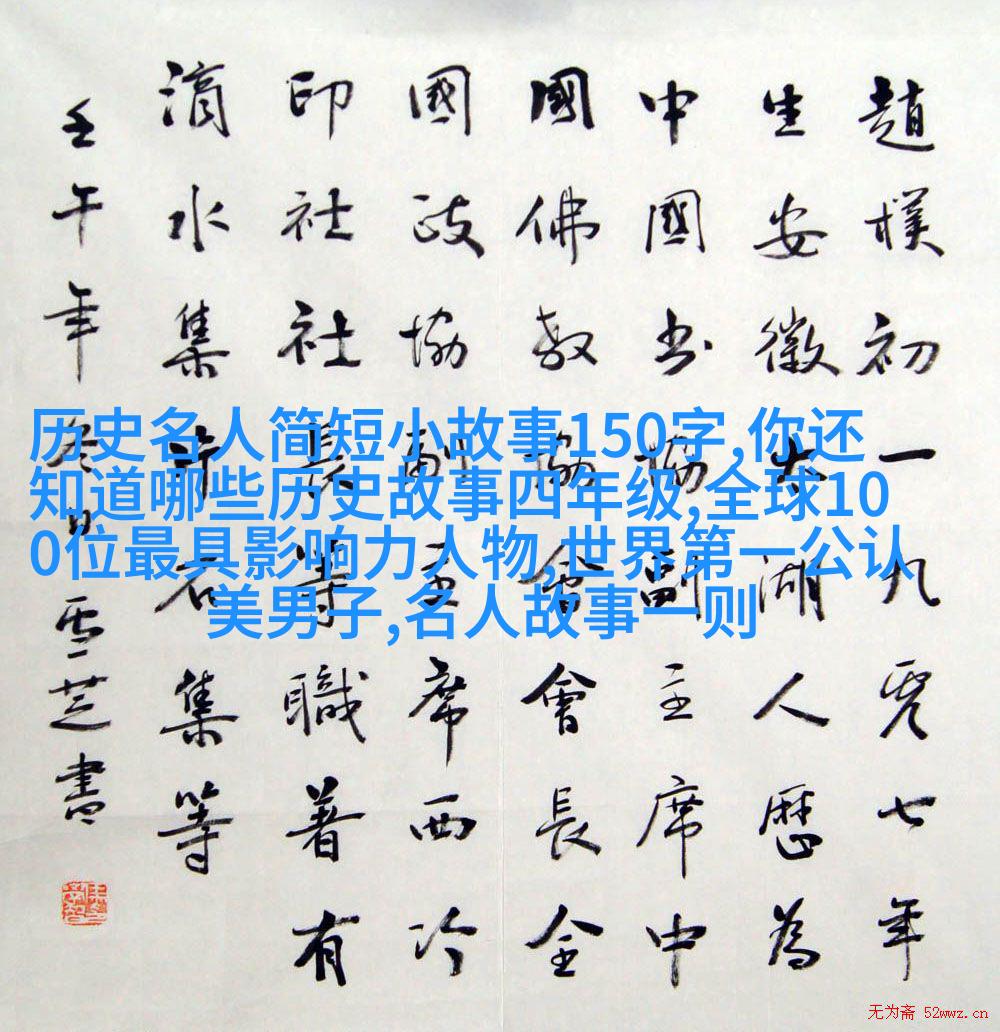 趙樸初一九零七年
生安徽太湖人歷為
中國書協副主席中
國佛教協會會長全
國政協副主席西冷
印社社長等職著有
滴水集片石集等
壬午年冬日雪芝書
历史名人简短小故事150字,你还
知道哪些历史故事四年级,全球10
0位最具影响力人物,世界第一公认
美男子,名人故事一则
无为斋 52wwz.cn